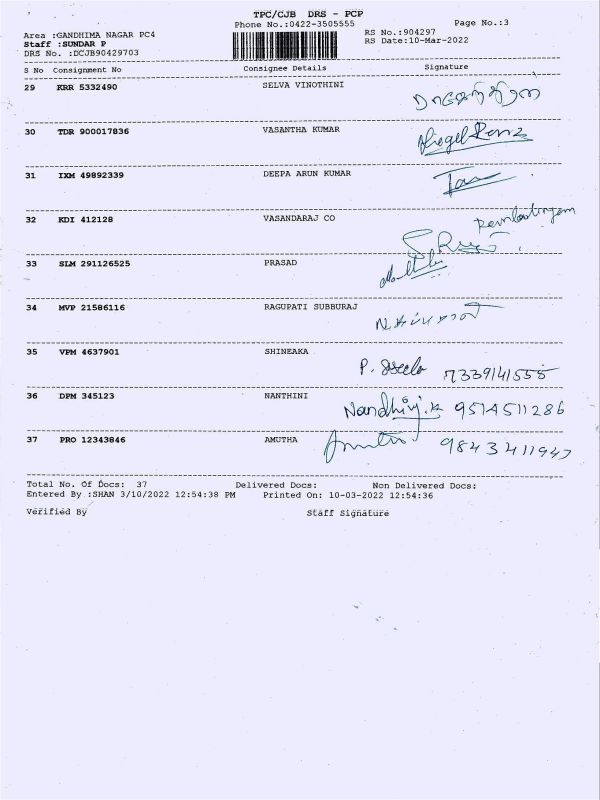 TPC/CJB DRS - PCP
Phone No.:0422-3505555 Page No.:3
Area :GANDHIMA NAGAR PC4 RS No.:904297
Staff :SUNDAR P RS Date:10-Mar-2022
DRS No. :DCJB90429703
S No Consignment No Consignee Details Signature
29 KRR 5332490 SELVA VINOTHINI
30 TDR 900017836 VASANTHA KUMAR
31 IXM 49892339 DEEPA ARUN KUMAR
32 KDI 412128 VASANDARAJ CO
33 SLM 291126525 PRASAD
34 MVP 21586116 RAGUPATI SUBBURAJ
35 VPM 4637901 SHINEAKA
P. 7339141555
36 DPM 345123 NANTHINI
Nandhini.k 9514511286
37 PRO 12343846 AMUTHA
9843411947
Total No. Of Docs: 37 Delivered Docs: Non Delivered Docs:
Entered By :SHAN 3/10/2022 12:54:38 PM Printed On: 10-03-2022 12:54:36
Verified By Staff Signature